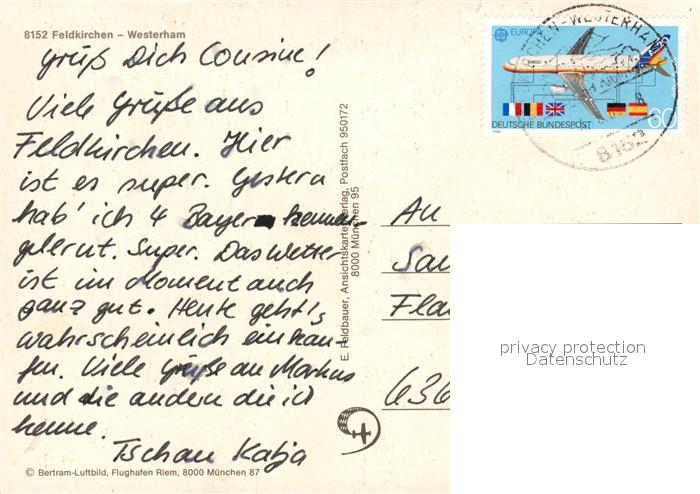 8152 Feldkirchen – Westerham
Grüß Dich Cousine!
Viele Grüße aus
Feldkirchen. Hier
ist es super. Gestern
hab' ich 4 Bayern kennen-
gelernt. Super. Das Wetter
ist im Moment auch
ganz gut. Heute geht's
wahrscheinlich einkau-
fen. Viele Grüße an Markus
und die andern die ich
kenne.
Tschau Katja
© Bertram-Luftbild, Flughafen Riem, 8000 München 87
E. Feldbauer, Ansichtskartenverlag, Postfach 950172
8000 München 95
EUROPA
A320
DEUTSCHE BUNDESPOST
60
8152
An
636
privacy protection
Datenschutz